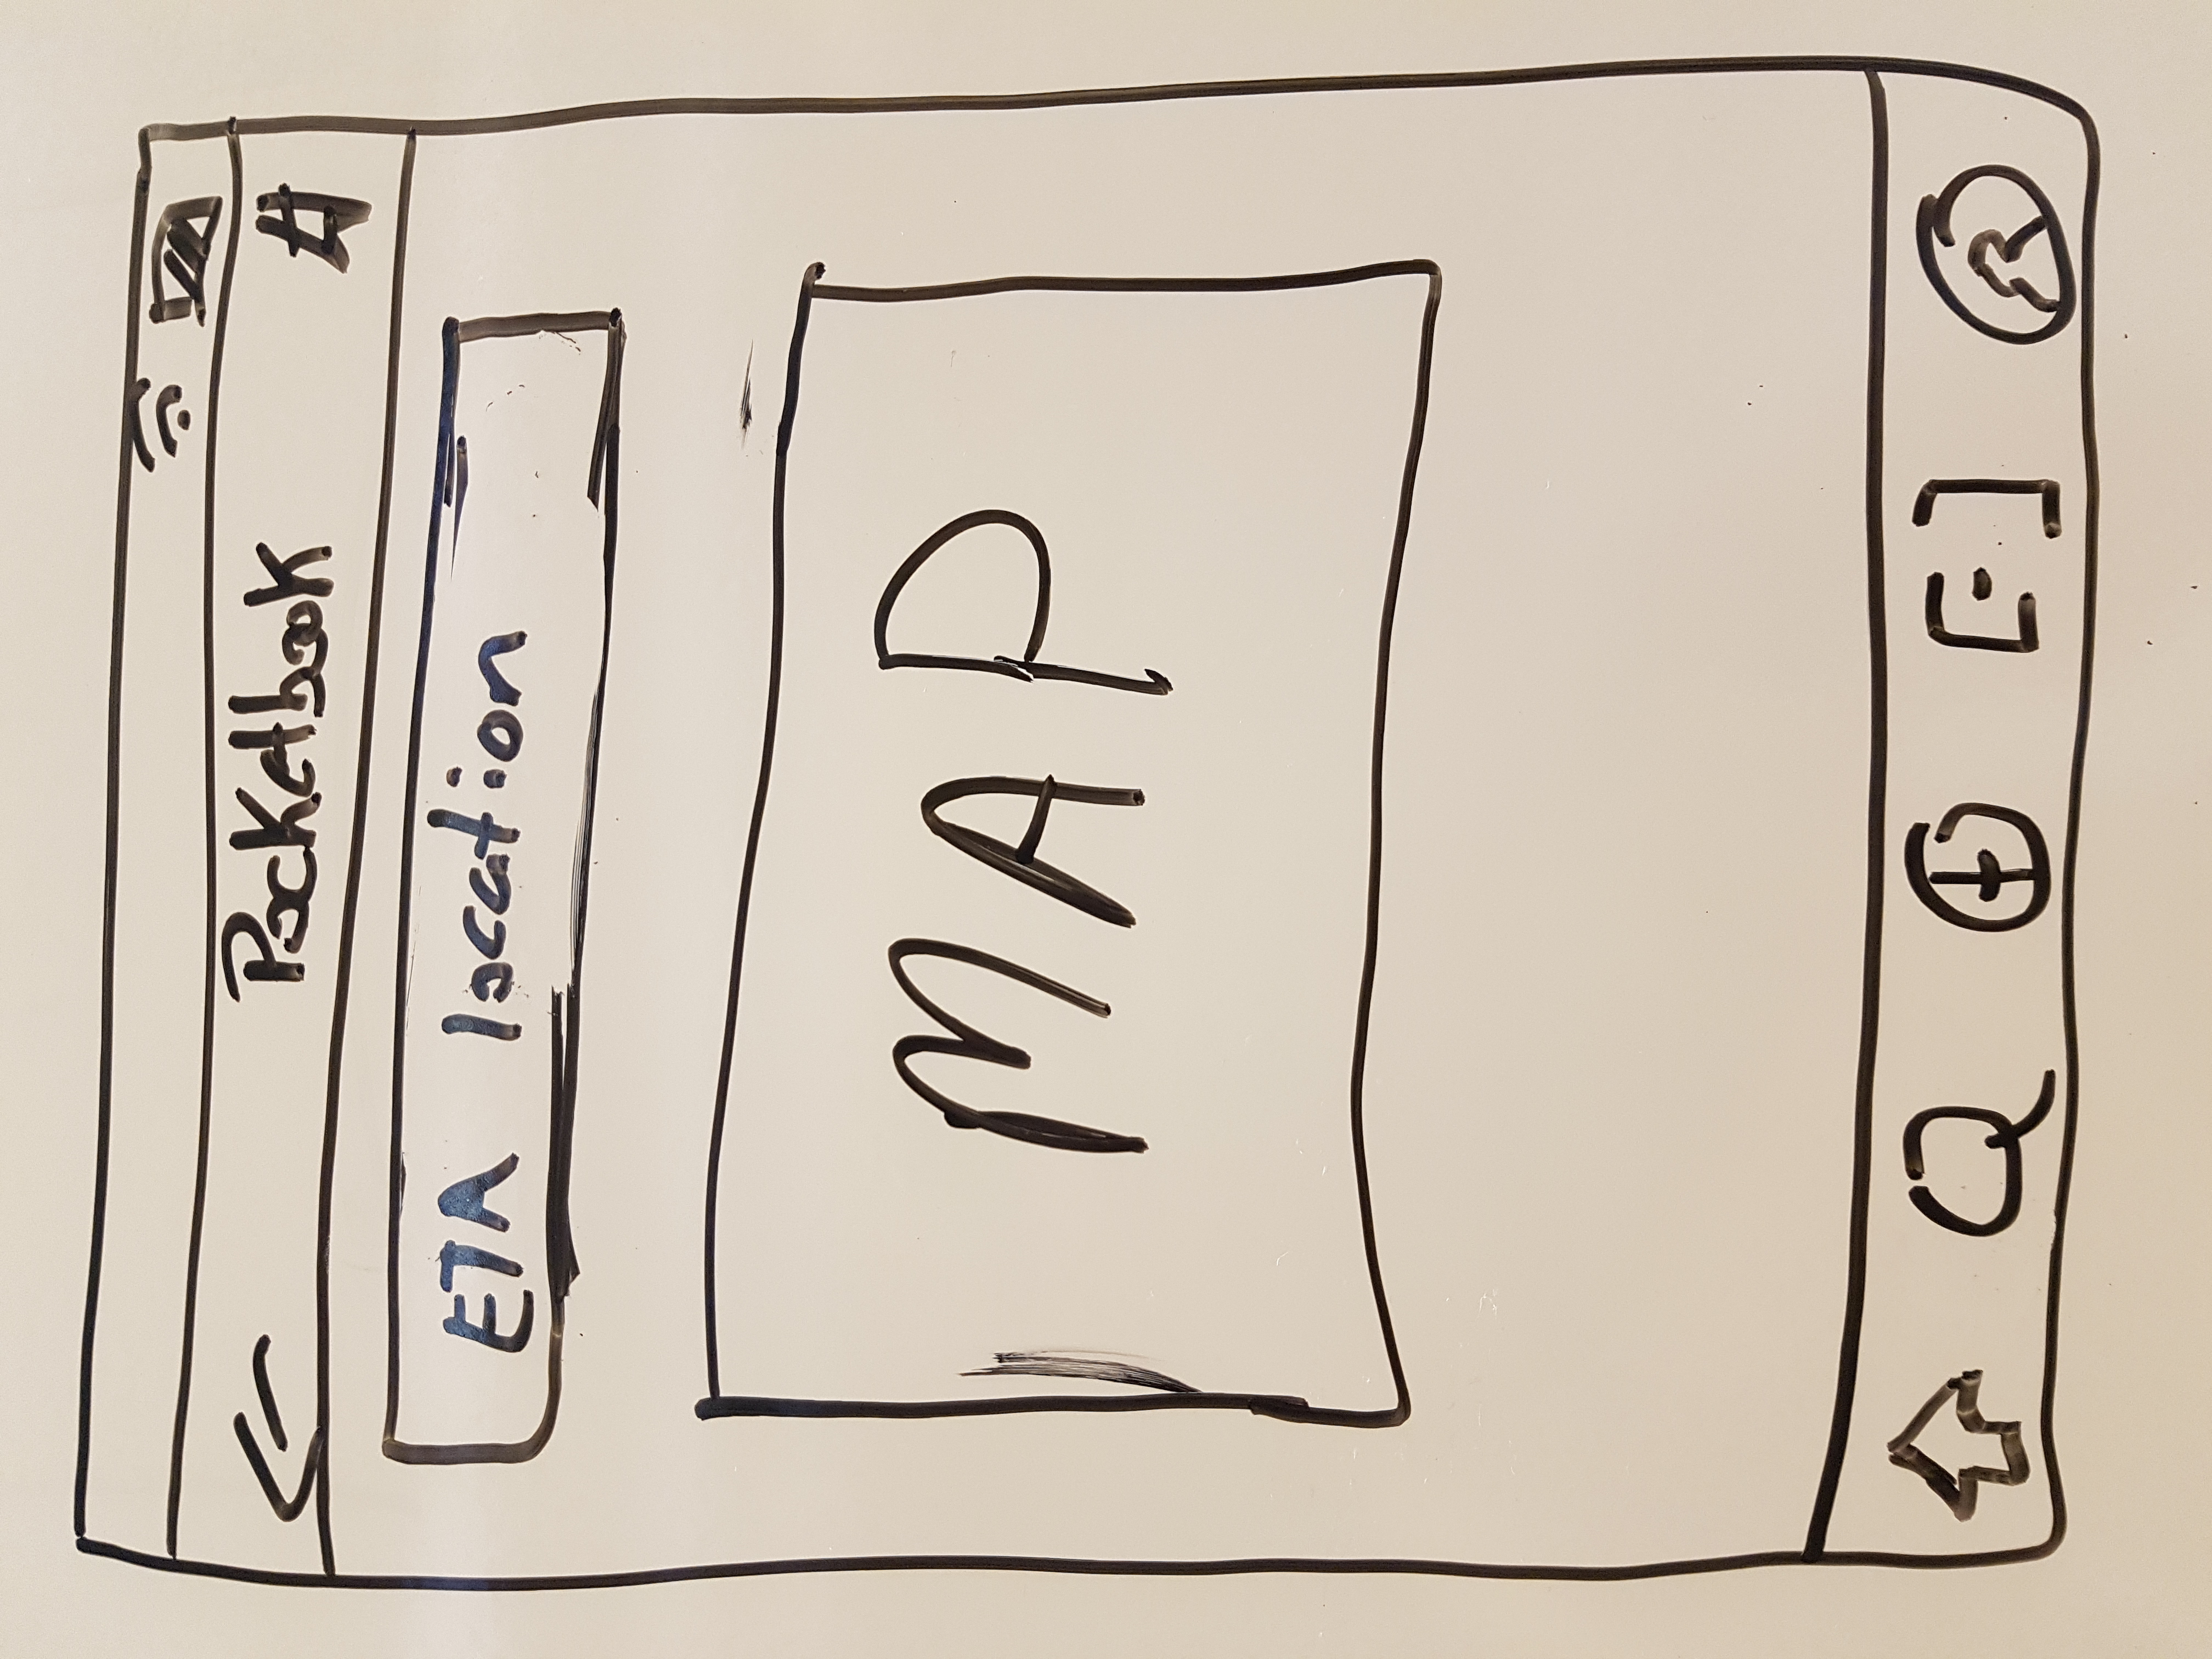 Pocketbook #
ETA location
MAP